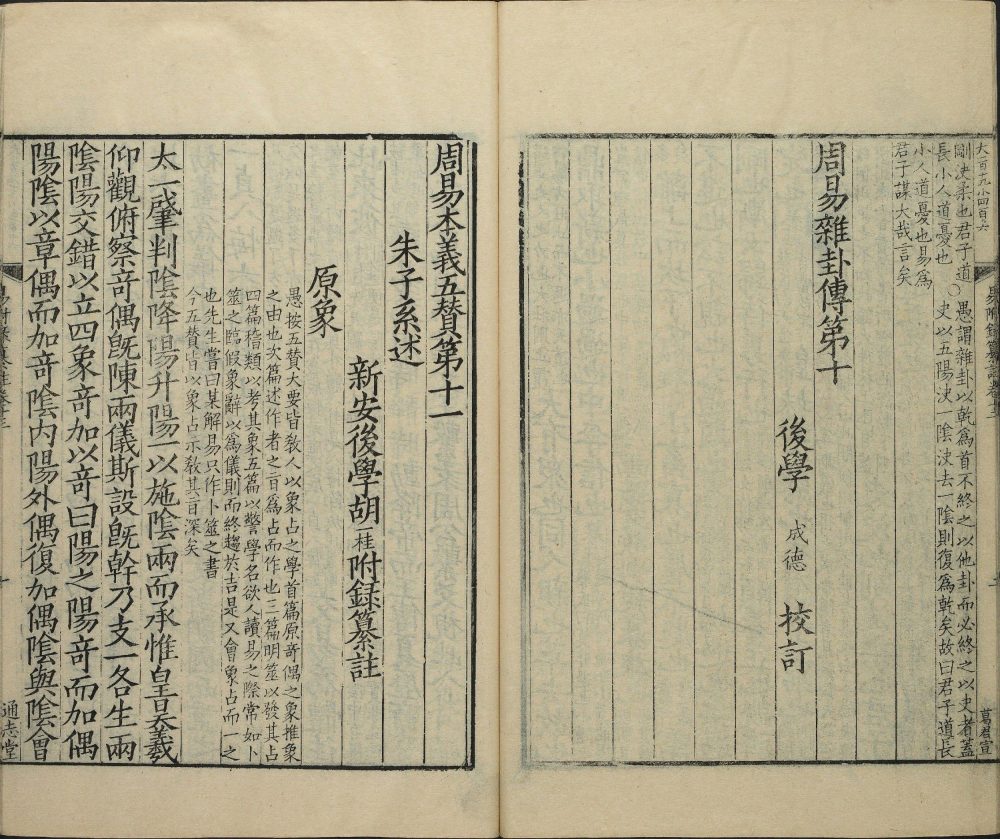 大一百十九小四百六
剛決柔也君子道
長小人道憂也○愚謂雜卦以乾爲首不終之以他卦而必終之以夬者蓋
夬以五陽決一陰決去一陰則復爲乾矣故曰君子道長
小人道憂也易爲
君子謀大哉言矣
周易雜卦傳第十
後學 成德 校訂
葛君宣
周易本義五贊第十一
朱子系述
新安後學胡一桂附録纂註
原象
愚按五贊大要皆教人以象占之學首篇原奇偶之象推象
之由也次篇述作者之㫖爲占而作也三篇明筮以發其占
四篇稽類以考其象五篇以警學名欲人讀易之際常如卜
筮之臨假象辭以爲儀則而終趨於吉是又會象占而一之
也先生嘗曰某解易只作卜筮之書
今五贊皆以象占示教其㫖深矣
太一肇判陰降陽升陽一以施陰兩而承惟皇昊羲
仰觀俯察奇偶旣陳兩儀斯設旣幹乃支一各生兩
陰陽交錯以立四象奇加以奇曰陽之陽奇而加偶
陽陰以章偶而加奇陰内陽外偶復加偶陰與陰會
通志堂